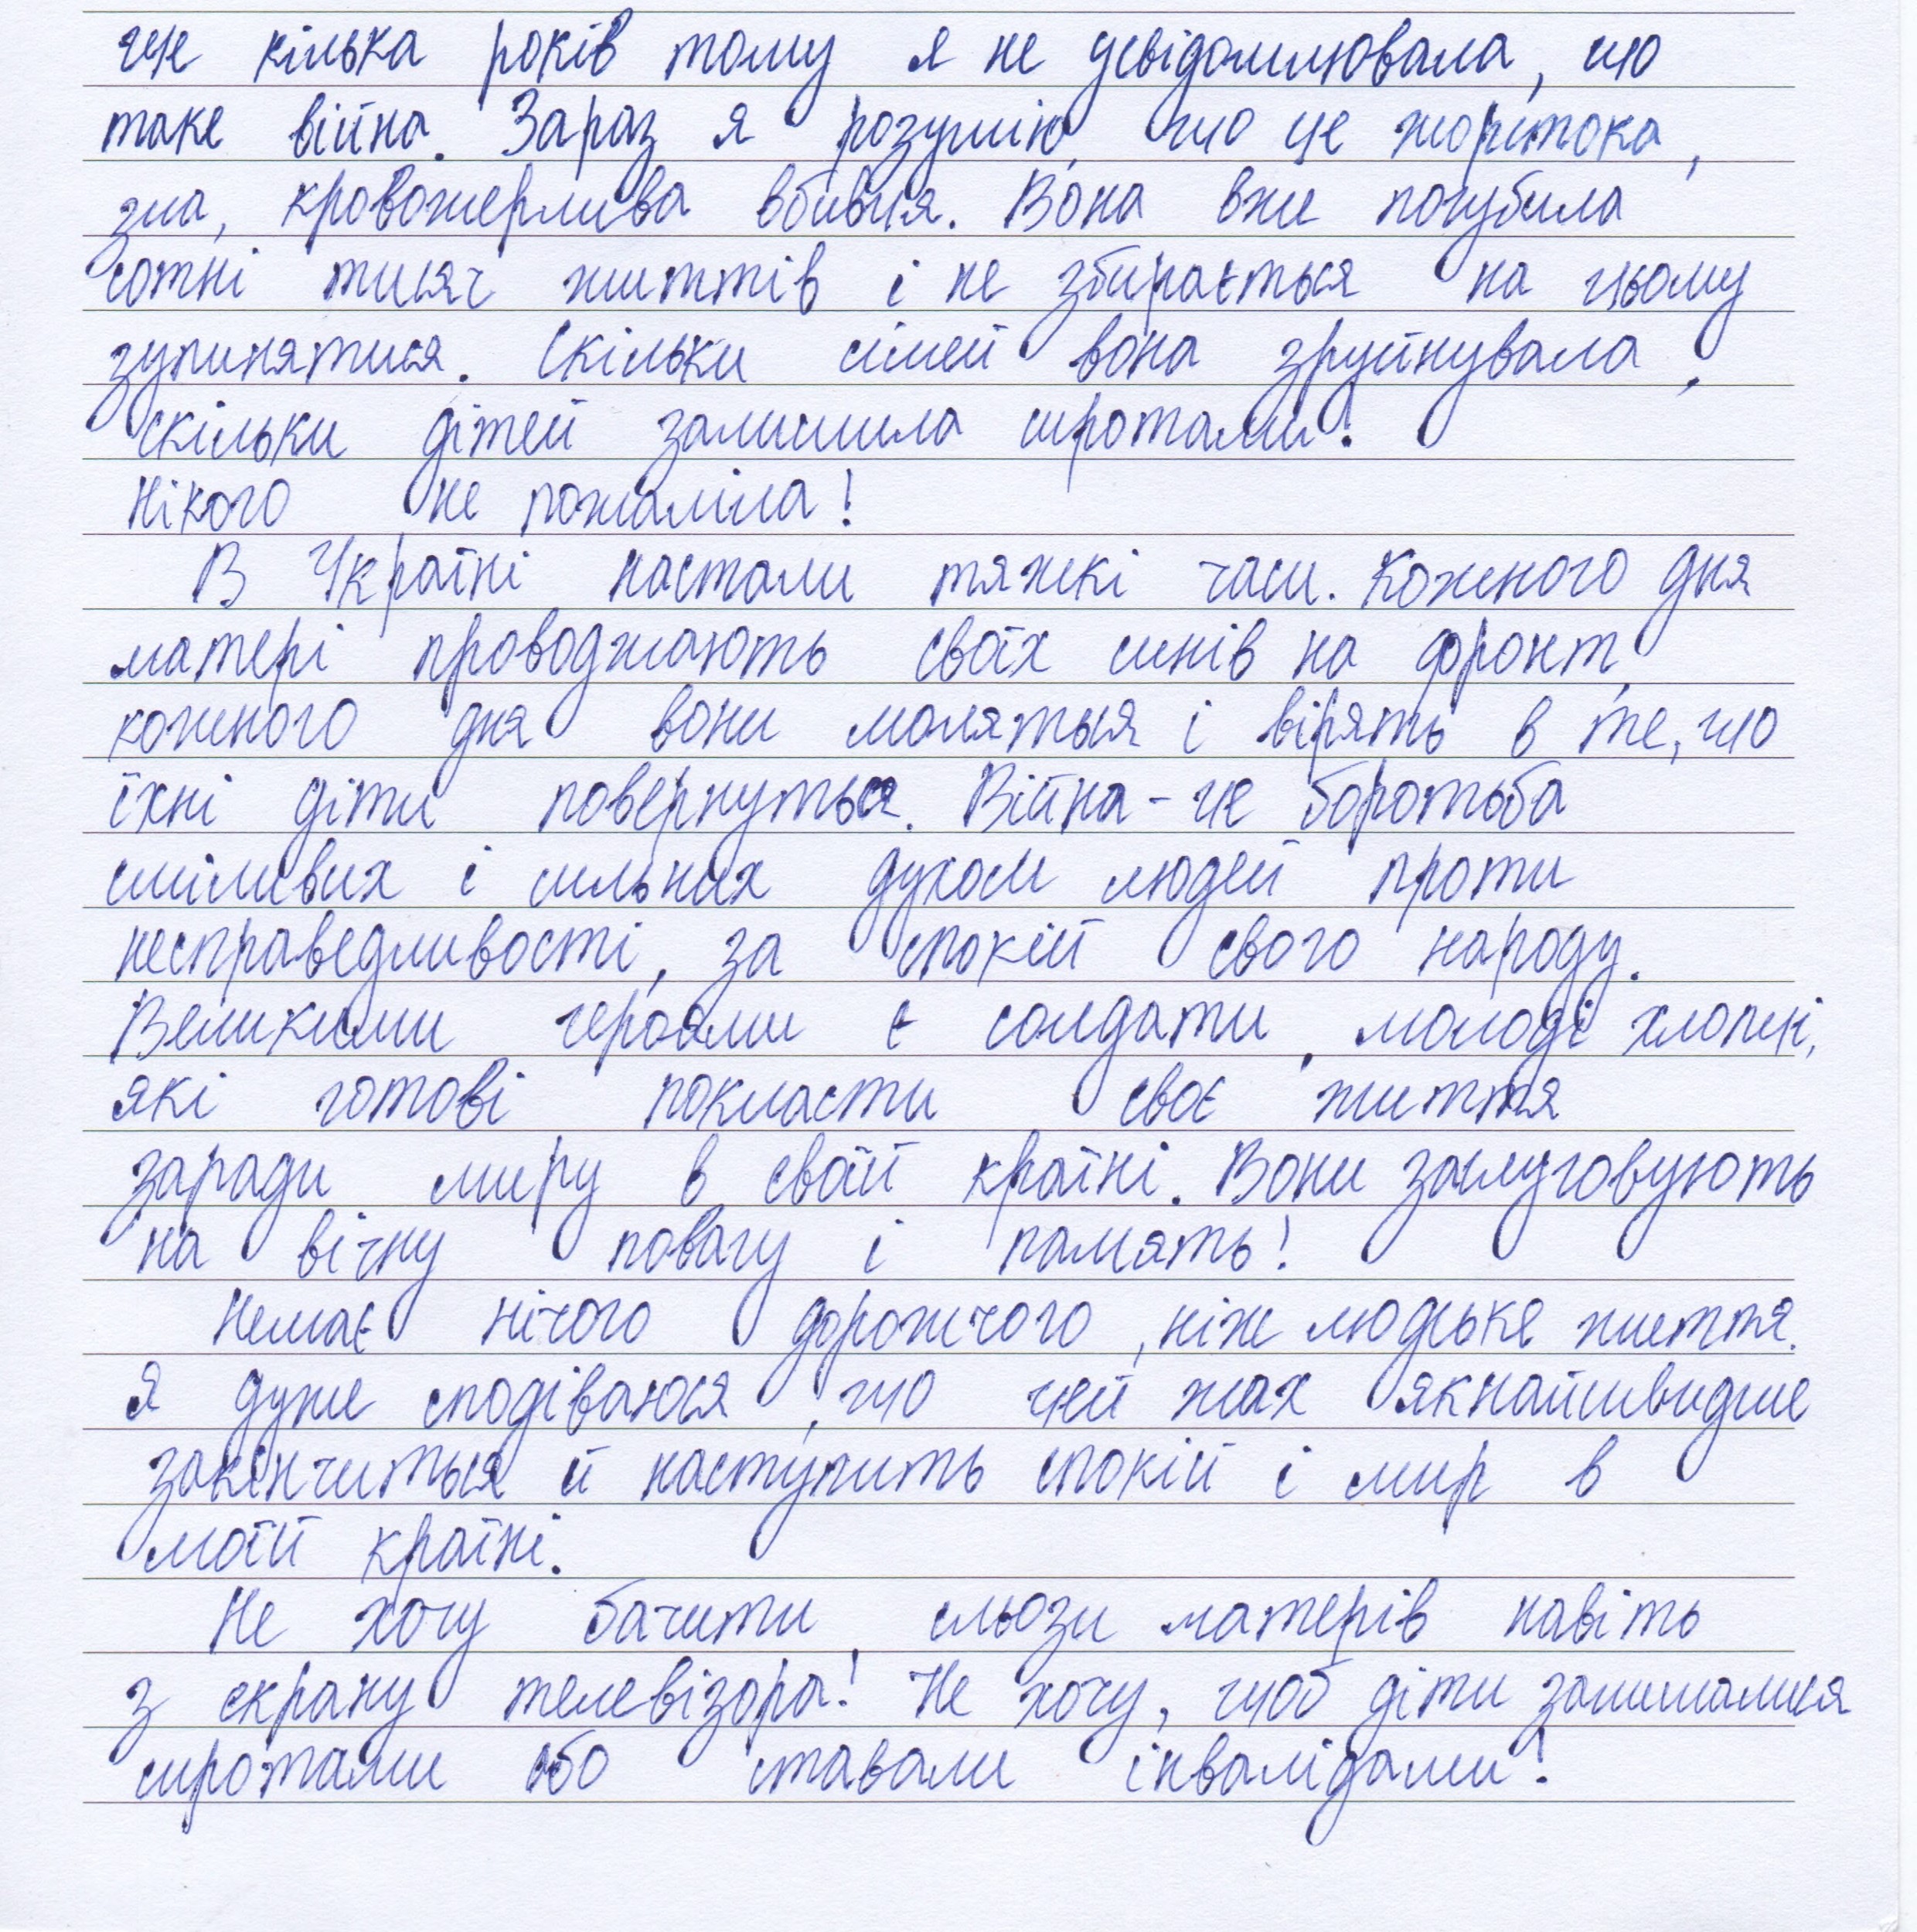 ще кілька років тому я не усвідомлювала, що
таке війна. Зараз я розумію, що це жорстока,
зла, кровожерлива вбивця. Вона вже погубила
сотні тисяч життів і не збирається на цьому
зупинятися. Скільки сімей вона зруйнувала,
скільки дітей залишила сиротами!
Нікого не пожаліла!
В Україні настали тяжкі часи. Кожного дня
матері проводжають своїх синів на фронт,
кожного дня вони моляться і вірять в те, що
їхні діти повернуться. Війна - це боротьба
сміливих і сильних духом людей проти
несправедливості, за спокій свого народу.
Великими героями є солдати, молоді хлопці,
які готові покласти своє життя
заради миру в своїй країні. Вони заслуговують
на вічну повагу і память!
Немає нічого дорожчого, ніж людське життя.
Я дуже сподіваюся, що цей жах якнайшвидше
закінчиться й наступить спокій і мир в
моїй країні.
Не хочу бачити сльози матерів навіть
з екрану телевізора! Не хочу, щоб діти залишалися
сиротами або ставали інвалідами!